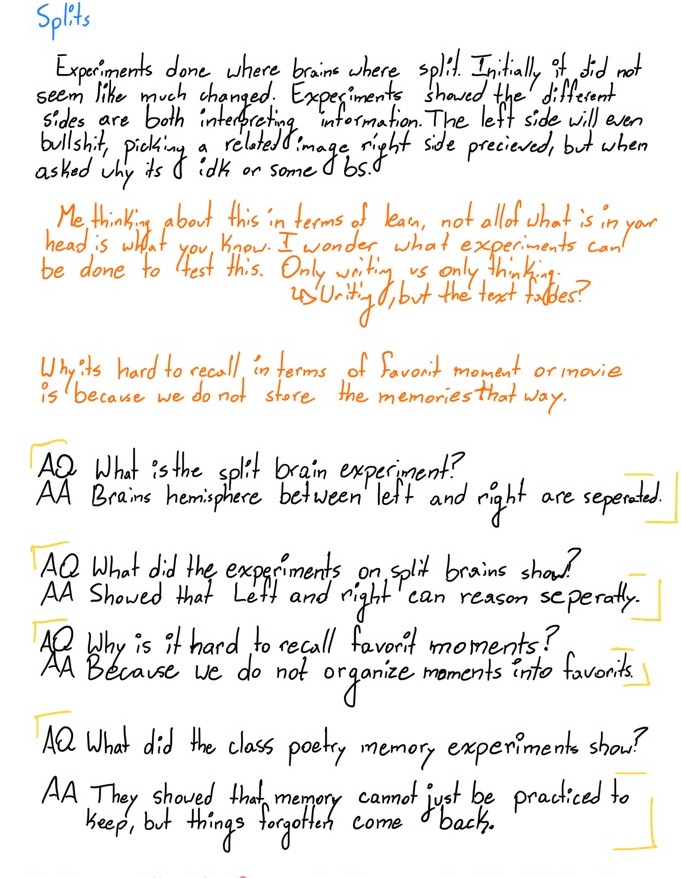 Splits
Experiments done where brains where split. Initially it did not
seem like much changed. Experiments showed the different
sides are both interpreting information. The left side will even
bullshit, picking a related image right side precieved, but when
asked why its idk or some bs.
Me thinking about this in terms of lean, not all of what is in your
head is what you know. I wonder what experiments can
be done to test this. Only writing vs only thinking.
Writing, but the text fades?
Why its hard to recall in terms of favorit moment or movie
is because we do not store the memories that way.
AQ What is the split brain experiment?
AA Brains hemisphere between left and right are seperated.
AQ What did the experiments on split brains show?
AA Showed that Left and right can reason seperatly.
AQ Why is it hard to recall favorit moments?
AA Because we do not organize moments into favorits.
AQ What did the class poetry memory experiments show?
AA They showed that memory cannot just be practiced to
keep, but things forgotten come back.